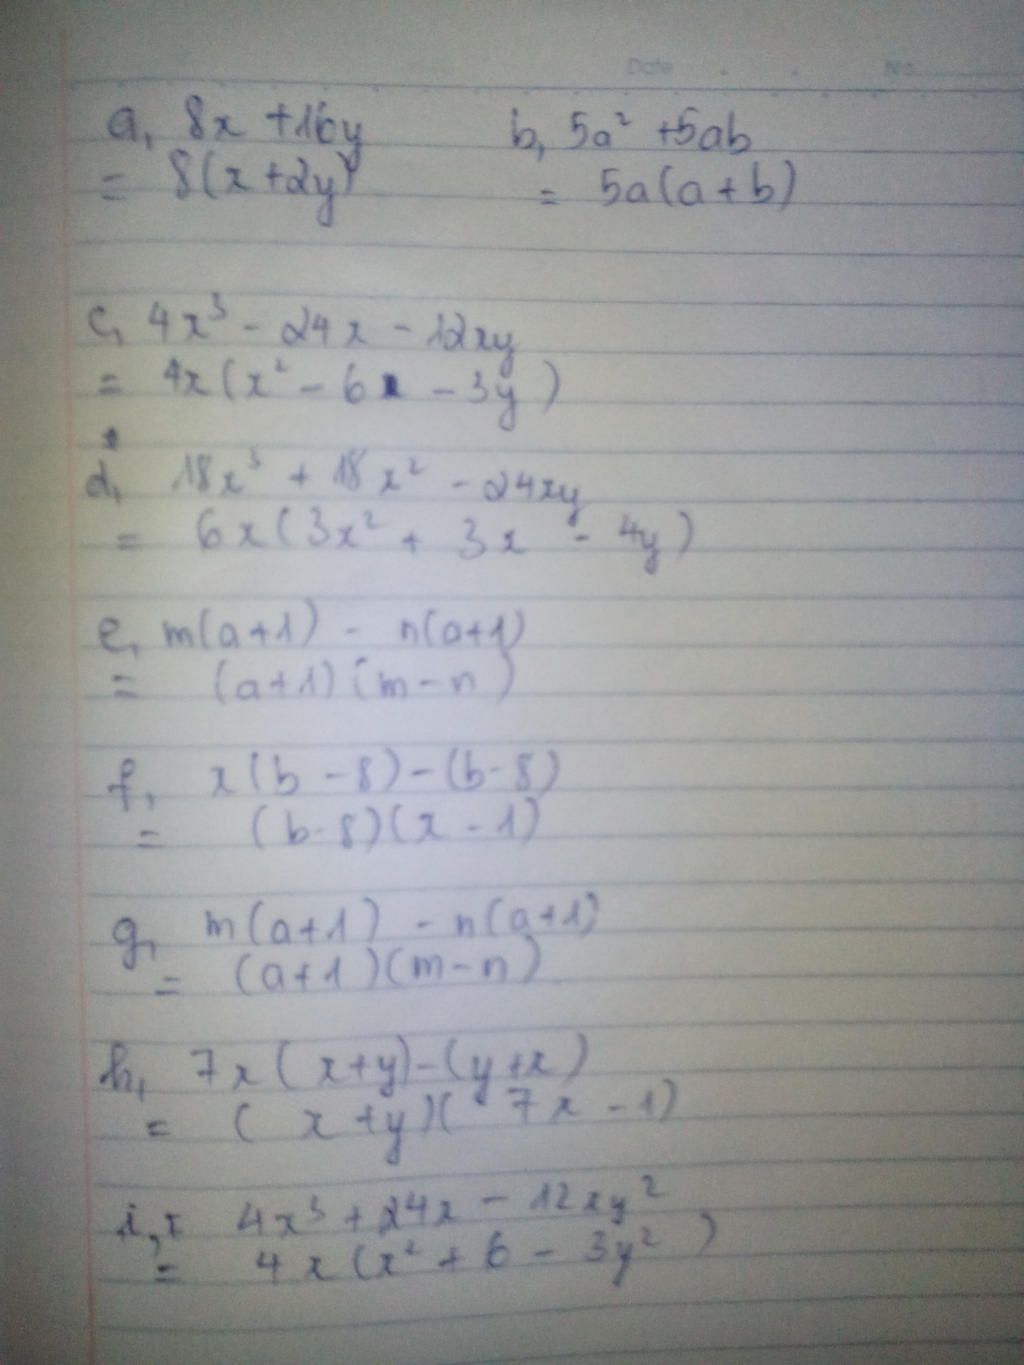 Date . . No.
a, 8x + 16y
= 8(x+2y)
b, 5a² + 5ab
= 5a(a+b)
c, 4x³ - 24x - 12xy
= 4x(x² - 6 - 3y)
d, 18x³ + 18x² - 24xy
= 6x(3x² + 3x - 4y)
e, m(a+1) - n(a+1)
= (a+1)(m-n)
f, x(b-8)-(b-8)
= (b-8)(x-1)
g, m(a+1) - n(a+1)
= (a+1)(m-n)
h, 7x(x+y)-(y+x)
= (x+y)(7x-1)
i, 4x³ + 24x - 12xy²
= 4x(x² + 6 - 3y²)